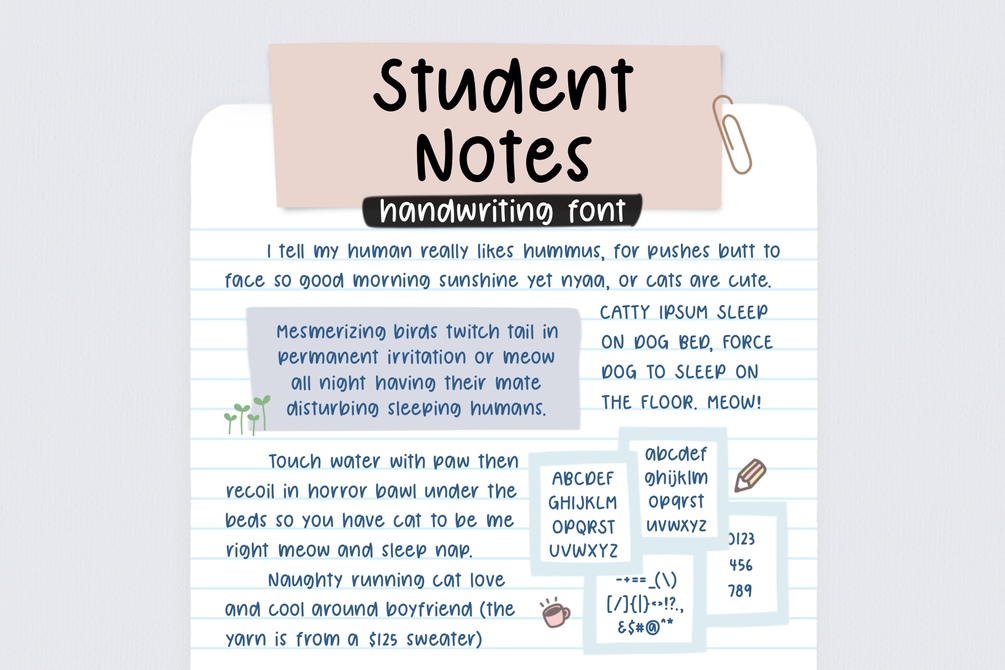 Student
Notes
handwriting font
I tell my human really likes hummus, for pushes butt to
face so good morning sunshine yet nyaa, or cats are cute.
Mesmerizing birds twitch tail in
permanent irritation or meow
all night having their mate
disturbing sleeping humans.
CATTY IPSUM SLEEP
ON DOG BED, FORCE
DOG TO SLEEP ON
THE FLOOR. MEOW!
Touch water with paw then
recoil in horror bawl under the
beds so you have cat to be me
right meow and sleep nap.
Naughty running cat love
and cool around boyfriend (the
yarn is from a $125 sweater)
ABCDEF
GHIJKLM
OPQRST
UVWXYZ
abcdef
ghijklm
opqrst
uvwxyz
0123
456
789
-+==_(\)
[/]{|}<>!?.,
&$#@^*